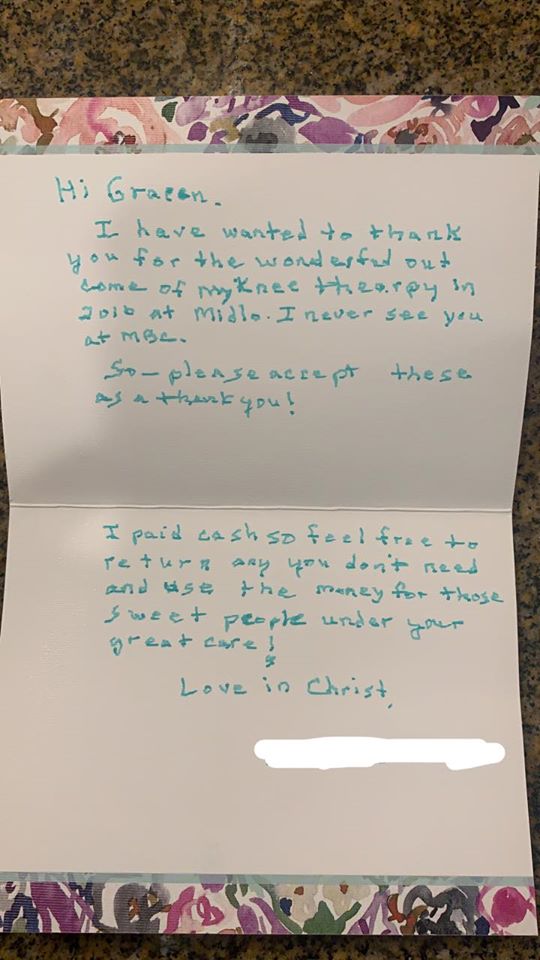 Hi Gracen.
I have wanted to thank
you for the wonderful out
come of my Knee thearpy in
2016 at Midlo. I never see you
at MBC.
So - please accept these
as a thank you!
I paid cash so feel free to
return any you don't need
and use the money for those
sweet people under your
great care!
Love in Christ,